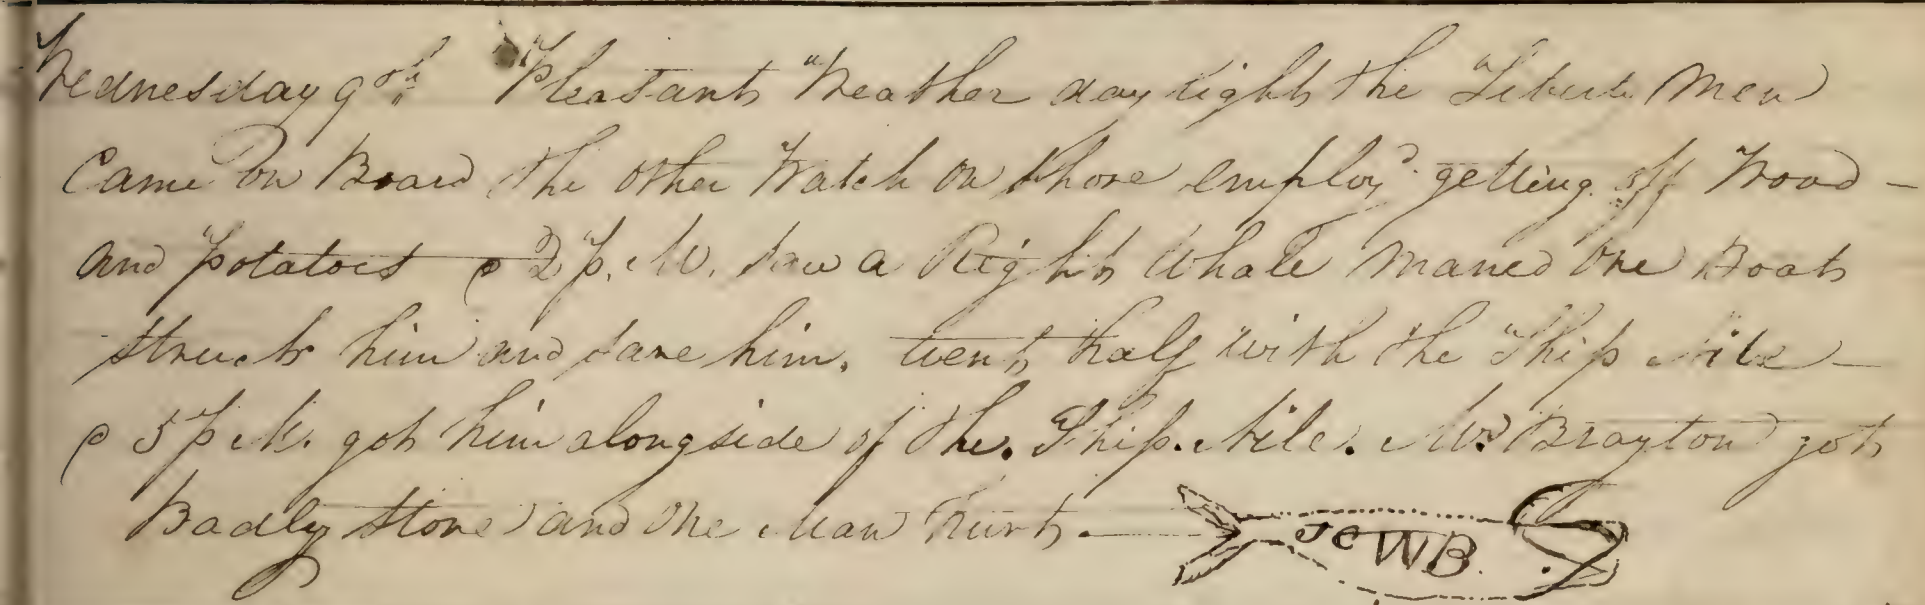 Wednesday 9th Pleasant Weather day light the Liberty Men
Came on Board the other Watch on Shore employd getting off Wood -
and potatoes @ 2 P.M. saw a Right Whale maned one Boat
Struck him and save him. went half with the Ship Nile -
@ 5 P.M. got him alongside of the Ship Nile. Mr Brayton got
Badly Stove and one Man hurt.
JCWB.